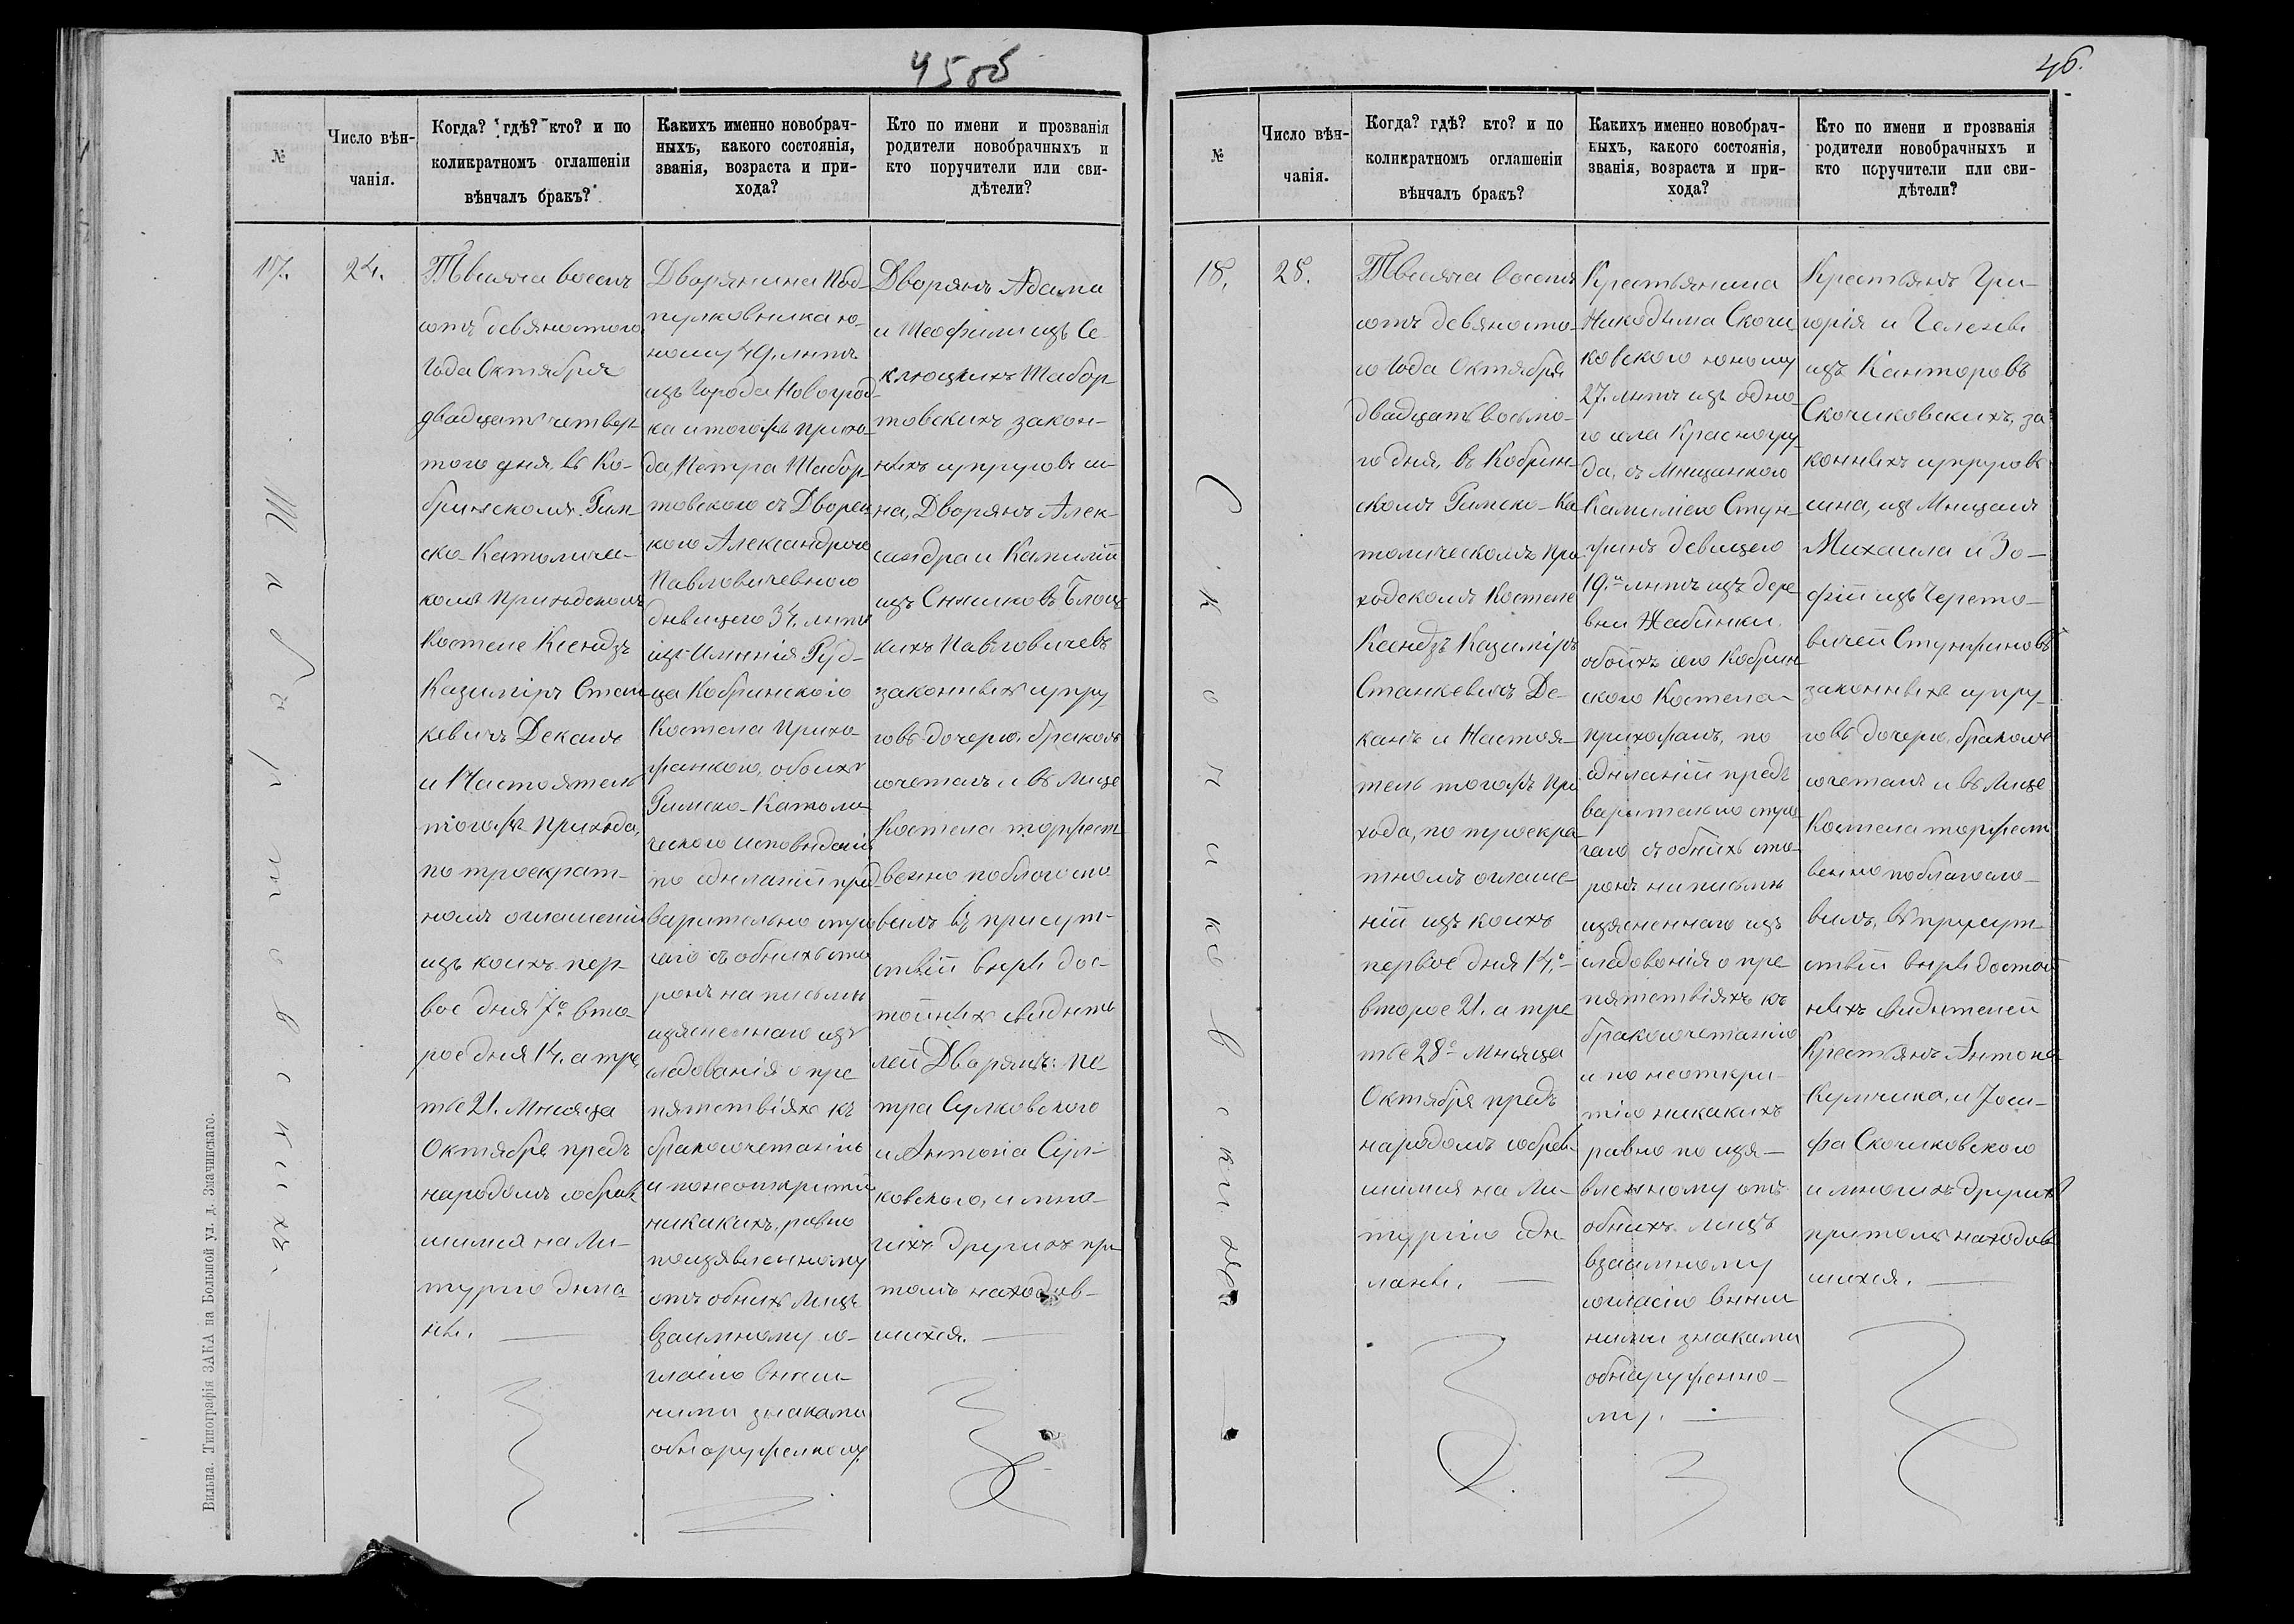 45об
№
Число вѣн-
чанія.
Когда? гдѣ? кто? и по
коликратномъ оглашеніи
вѣнчалъ бракъ?
Какихъ именно новобрач-
ныхъ, какого состоянія,
званія, возраста и при-
хода?
Кто по имени и прозванія
родители новобрачныхъ и
кто поручители или сви-
дѣтели?
17.
24.
Тысяча восем
сотъ девяностого
Года Октября
двадцать четвер
того дня, въ Ко-
бринскомъ Рим-
ско-Католиче-
комъ приходскомъ
Костеле Ксендзъ
Казимиръ Стан
кевичъ Деканъ
и Настоятель
тогожъ прихода,
по троекрат-
номъ оглашеніи
изъ коихъ пер-
вое дня 7о вто-
рое дня 14. а тре
тье 21. Мнсяца
Октября предъ
народомъ собрав
шимся на Ли-
тургію дела-
ны.
Дворянина Под-
пулковника ю-
ному 49. лѣтъ
изъ Города Новоград-
ка и тогожъ прихо-
да, Петра Шабор-
товского съ Дворян-
кою Александрою
Павловичевною
девицею 34. лѣтъ
изъ имѣнія Руд-
ца Кобринского
Костела Прихо-
жанкою, обоихъ
Римско-Католи
ческого исповѣданія
по сдѣланіи пред-
варительно стро
гаго съ обѣихъ сто
ронъ на письмѣ
изясненнаго из
следованія о пре
пятствіяхъ къ
бракосочетанію
и понеоткрытіи
никакихъ, равно
поизявленному
отъ обѣихъ лицъ
взаимному со-
гласію внеш-
ними знаками
обнаруженному.
Дворянъ Адама
и Теофили изъ Се-
клюцкихъ Шабор
товскихъ закон-
ныхъ супруговъ сы-
на, Дворянъ Алек-
сандра и Камиліи
кихъ Павловичевъ
законныхъ супру
говъ дочерю, бракомъ
сочеталъ и въ Лице
Костела торжест
венно поблагосло
вилъ въ присут-
ствіи вѣры дос-
тойныхъ свидѣте
лей Дворянъ: Пе-
тра Сулковского
и Антонія Сул-
ковского, и мно-
гихъ другихъ при
томъ находив-
шихся.
Шабортовскихъ
Вильна. Типографія ЗАКА на Большой ул. д. Значинскаго.
46.
№
Число вѣн-
чанія.
Когда? гдѣ? кто? и по
коликратномъ оглашеніи
вѣнчалъ бракъ?
Какихъ именно новобрач-
ныхъ, какого состоянія,
званія, возраста и при-
хода?
Кто по имени и прозванія
родители новобрачныхъ и
кто поручители или сви-
дѣтели?
18.
28.
Тысяча восемъ
сотъ девяносто-
го года Октября
двадцать восьмо-
го дня, въ Кобрин-
скомъ Римско-Ка
толическомъ при
ходскомъ Костеле
Ксендзъ Казимиръ
Станкевичъ Де-
канъ и Настоя-
тель тогожъ При
хода, по троекра-
тномъ оглаше-
ніи изъ коихъ
первое дня 14.о
второе 21. а тре
тье 28о Мнсяца
Октября предъ
народомъ собрав
шимся на Ли-
тургію сдѣ-
ланы.
Крестьянина
Никодима Скочи
ковского юному
27. лѣтъ изъ одно-
го села Красногру
да, съ Мнщанкою
Камиліею Стун-
жинъ девицею
19.и лѣтъ изъ дере
вни Жабинки,
обоихъ сего Кобрин
ского Костела
прихожанъ, по
сдѣланіи предъ
варительно стро
гаго съ обѣихъ сто-
ронъ на письмѣ
изясненнаго изъ
следованія о пре
пятствіяхъ къ
бракосочетанію
и по неоткры-
тію никакихъ
равно по изя-
вленному отъ
обѣихъ лицъ
взаимному
согласію внеш
ними знаками
обнаруженно-
му.
Крестьянъ Гри-
горія и
изъ Канторовъ
Скочиковскихъ, за
конныхъ супруговъ
сына, изъ Мнщанъ
Михаила и Зо-
фіи изъ Черето-
вичей Стунжиновъ
законныхъ супру-
говъ дочерю, бракомъ
сочеталъ и въ Лице
Костела торжест
венно поблагосло-
вилъ, въ присут-
ствіи вѣры достой
ныхъ свидѣтелей
Крестьянъ Антона
и Іоси-
фа Скочиковского
и многихъ другихъ
притомъ находив
шихся.
Скочиковскихъ